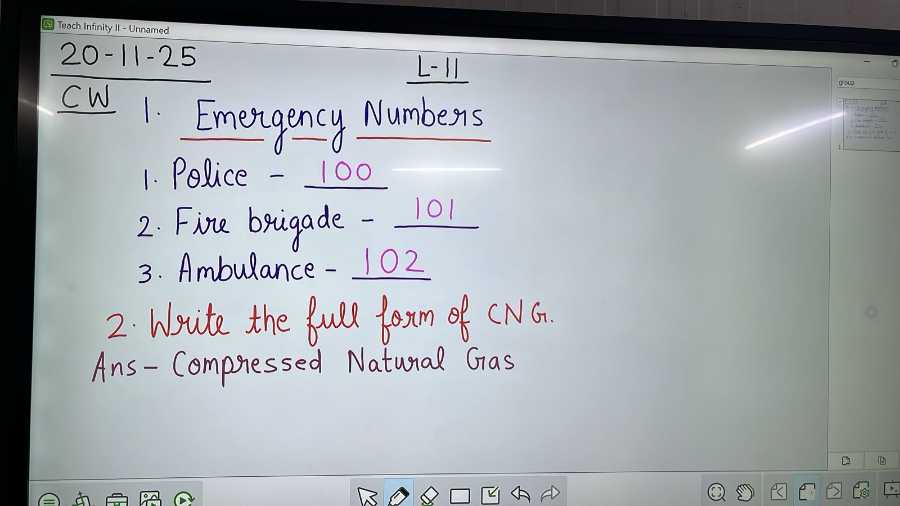 Teach Infinity II - Unnamed
20-11-25 L-11
CW 1. Emergency Numbers
1. Police - 100
2. Fire brigade - 101
3. Ambulance - 102
2. Write the full form of CNG.
Ans - Compressed Natural Gas
group